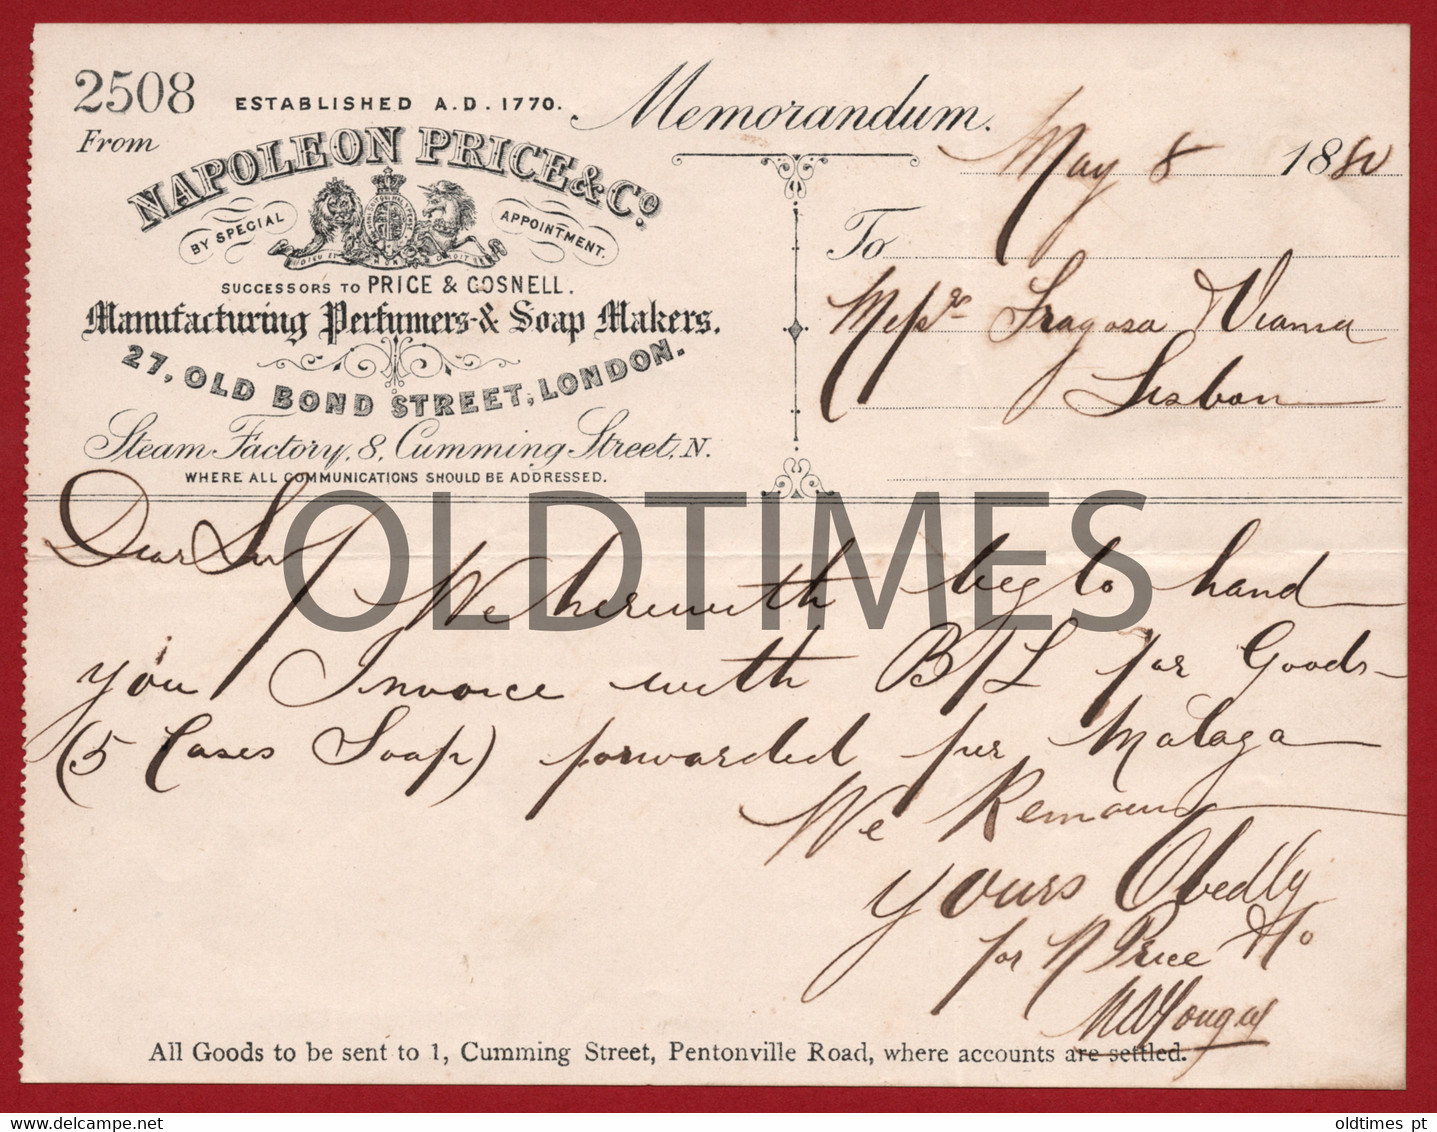 2508
ESTABLISHED A.D. 1770.
Memorandum.
From
NAPOLEON PRICE & Co.
May 8 1880
BY SPECIAL APPOINTMENT.
DIEU ET MON DROIT
To
SUCCESSORS TO PRICE & COSNELL.
Messrs Fragosa & Vianna
Manufacturing Perfumers & Soap Makers.
27, OLD BOND STREET, LONDON.
Lisbon
Steam Factory, 8, Cumming Street, N.
WHERE ALL COMMUNICATIONS SHOULD BE ADDRESSED.
OLDTIMES
Dear Sir
We herewith beg to hand
you Invoice with B/L for Goods
(5 Cases Soap) forwarded per Malaga
We Remain
yours Obedtly
for N Price & Co
All Goods to be sent to 1, Cumming Street, Pentonville Road, where accounts are settled.
delcampe.net
oldtimes pt